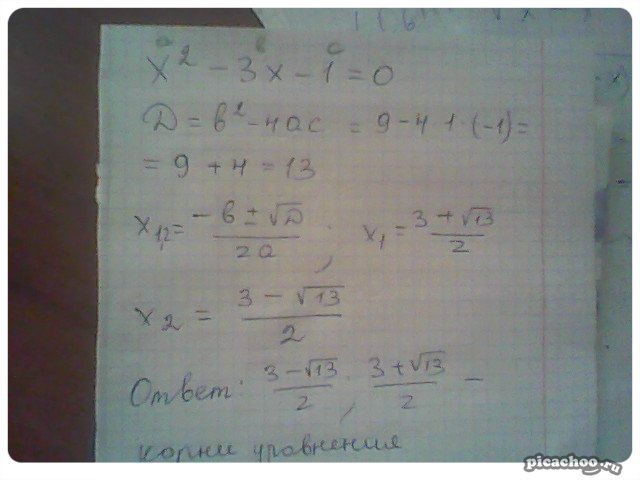 a в c
x² - 3x - 1 = 0
D = в² - 4ac = 9 - 4·1·(-1) =
= 9 + 4 = 13
x₁,₂ = (-в ± √D)/2a ; x₁ = (3 + √13)/2
x₂ = (3 - √13)/2
Ответ: (3 - √13)/2 , (3 + √13)/2 -
корни уровнения
picachoo.ru